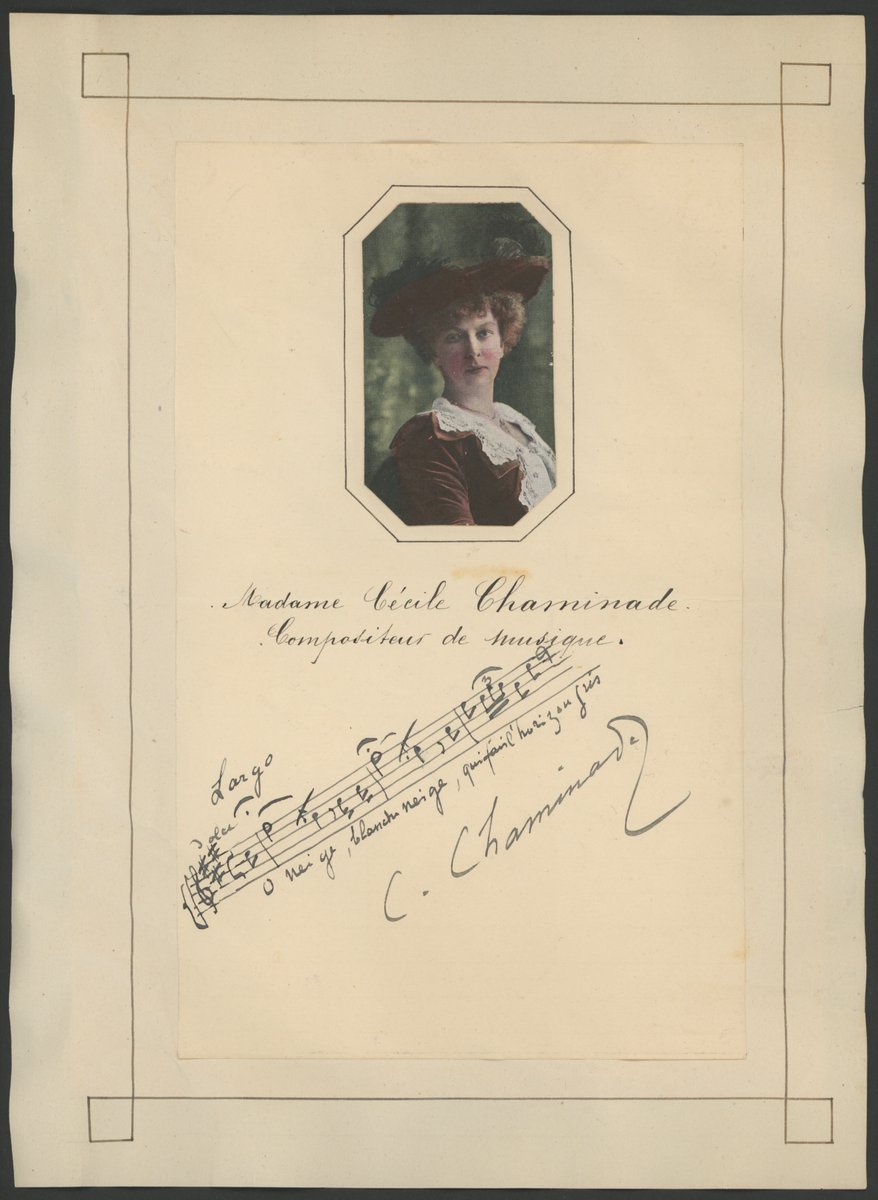 . Madame Cécile Chaminade.
Compositeur de musique.
Largo
dolce
3
O neige, blanche neige, qui fait l'horizon gris
C. Chaminade